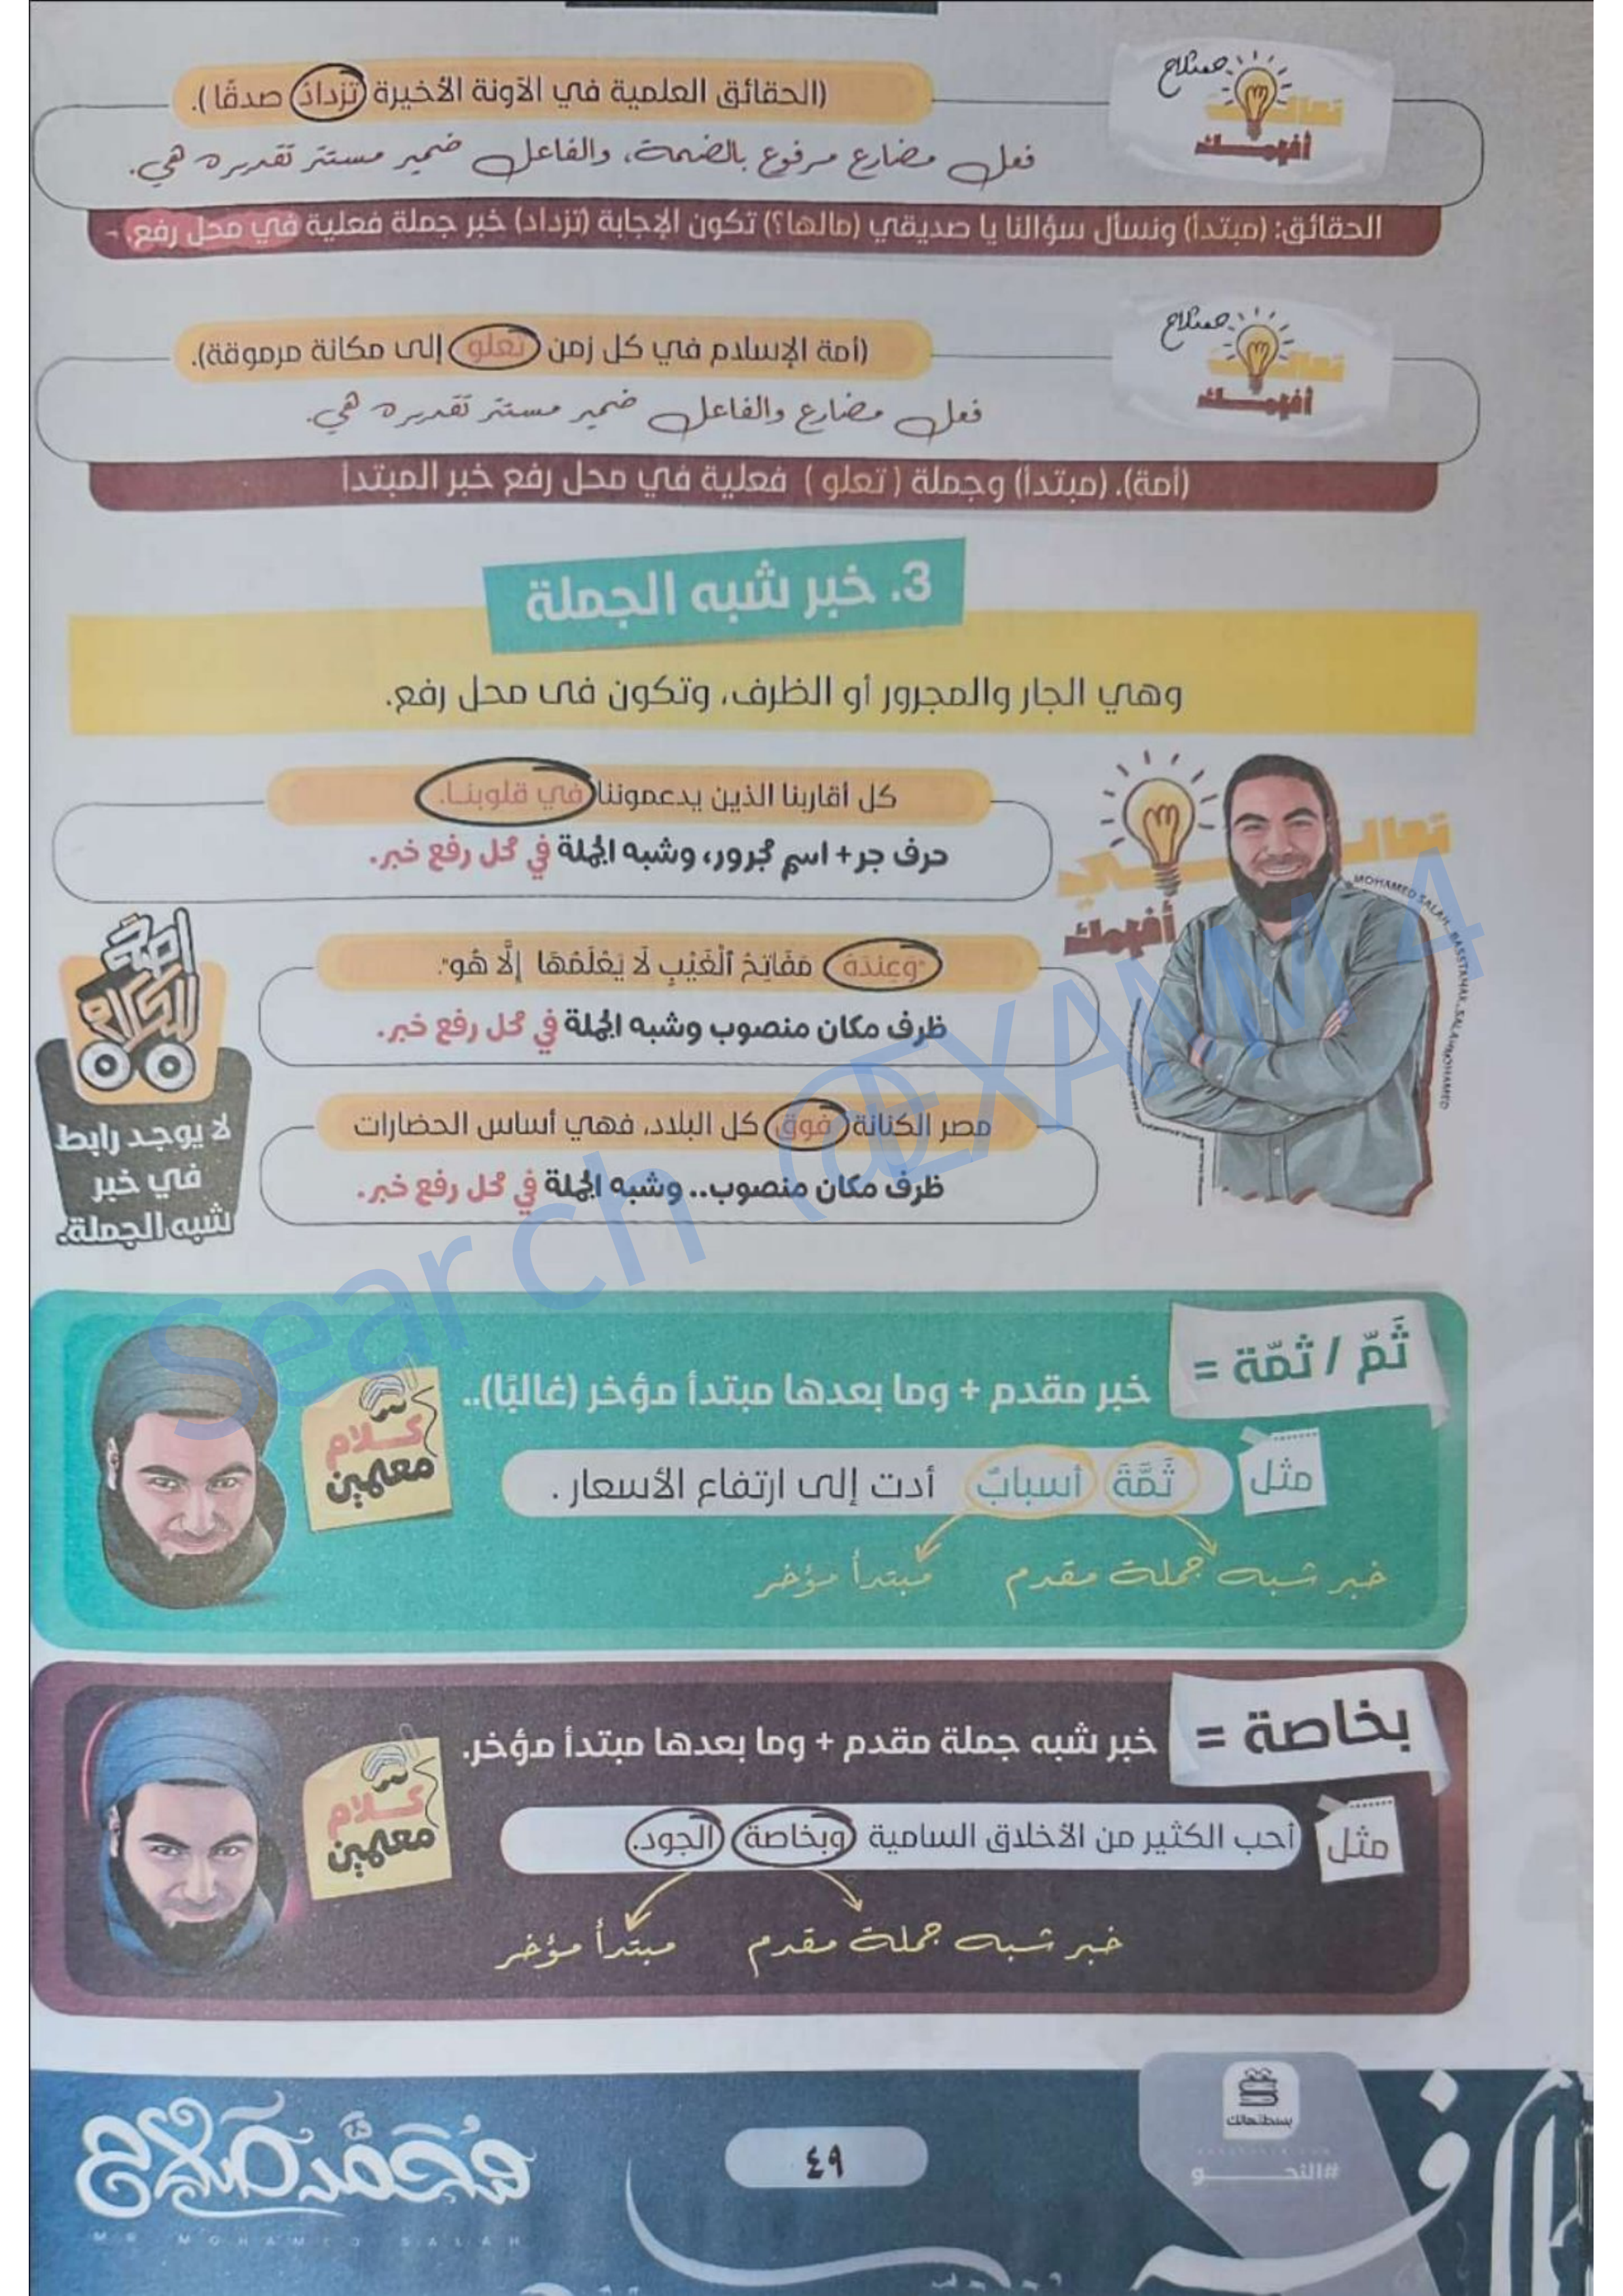 صلاح
تعالى
أفهمك
(الحقائق العلمية في الآونة الأخيرة تزدادُ صدقًا).
فعل مضارع مرفوع بالضمة، والفاعل ضمير مستتر تقديره هي.
الحقائق: (مبتدأ) ونسأل سؤالنا يا صديقي (مالها؟) تكون الإجابة (تزداد) خبر جملة فعلية في محل رفع.
صلاح
تعالى
أفهمك
(أمة الإسلام في كل زمن تعلو إلى مكانة مرموقة).
فعل مضارع والفاعل ضمير مستتر تقديره هي.
(أمة). (مبتدأ) وجملة (تعلو) فعلية في محل رفع خبر المبتدأ
3. خبر شبه الجملة
وهي الجار والمجرور أو الظرف، وتكون فى محل رفع.
تعالـــي
أفهمك
MOHAMED SALAH_BASSTAHAK_SALAHMOHAMED
كل أقاربنا الذين يدعموننا في قلوبنا.
حرف جر + اسم مجرور، وشبه الجملة في محل رفع خبر.
"وَعِندَهُ مَفَاتِحُ ٱلْغَيْبِ لَا يَعْلَمُهَا إِلَّا هُو".
ظرف مكان منصوب وشبه الجملة في محل رفع خبر.
مصر الكنانة فوق كل البلاد، فهي أساس الحضارات
ظرف مكان منصوب.. وشبه الجملة في محل رفع خبر.
للكلام
لا يوجد رابط
في خبر
شبه الجملة.
ثَمّ / ثمّة =
خبر مقدم + وما بعدها مبتدأ مؤخر (غالبًا)..
كــلام
معلمين
مثل
ثَمَّةَ أسبابٌ أدت إلى ارتفاع الأسعار .
خبر شبه جملة مقدم
مبتدأ مؤخر
بخاصة =
خبر شبه جملة مقدم + وما بعدها مبتدأ مؤخر.
كــلام
معلمين
مثل
أحب الكثير من الأخلاق السامية وبخاصة الجود.
خبر شبه جملة مقدم
مبتدأ مؤخر
Search @EXAM 4
بسطتهالك
#النحـــو
٤٩
محمد صلاح
MR MOHAMED SALAH